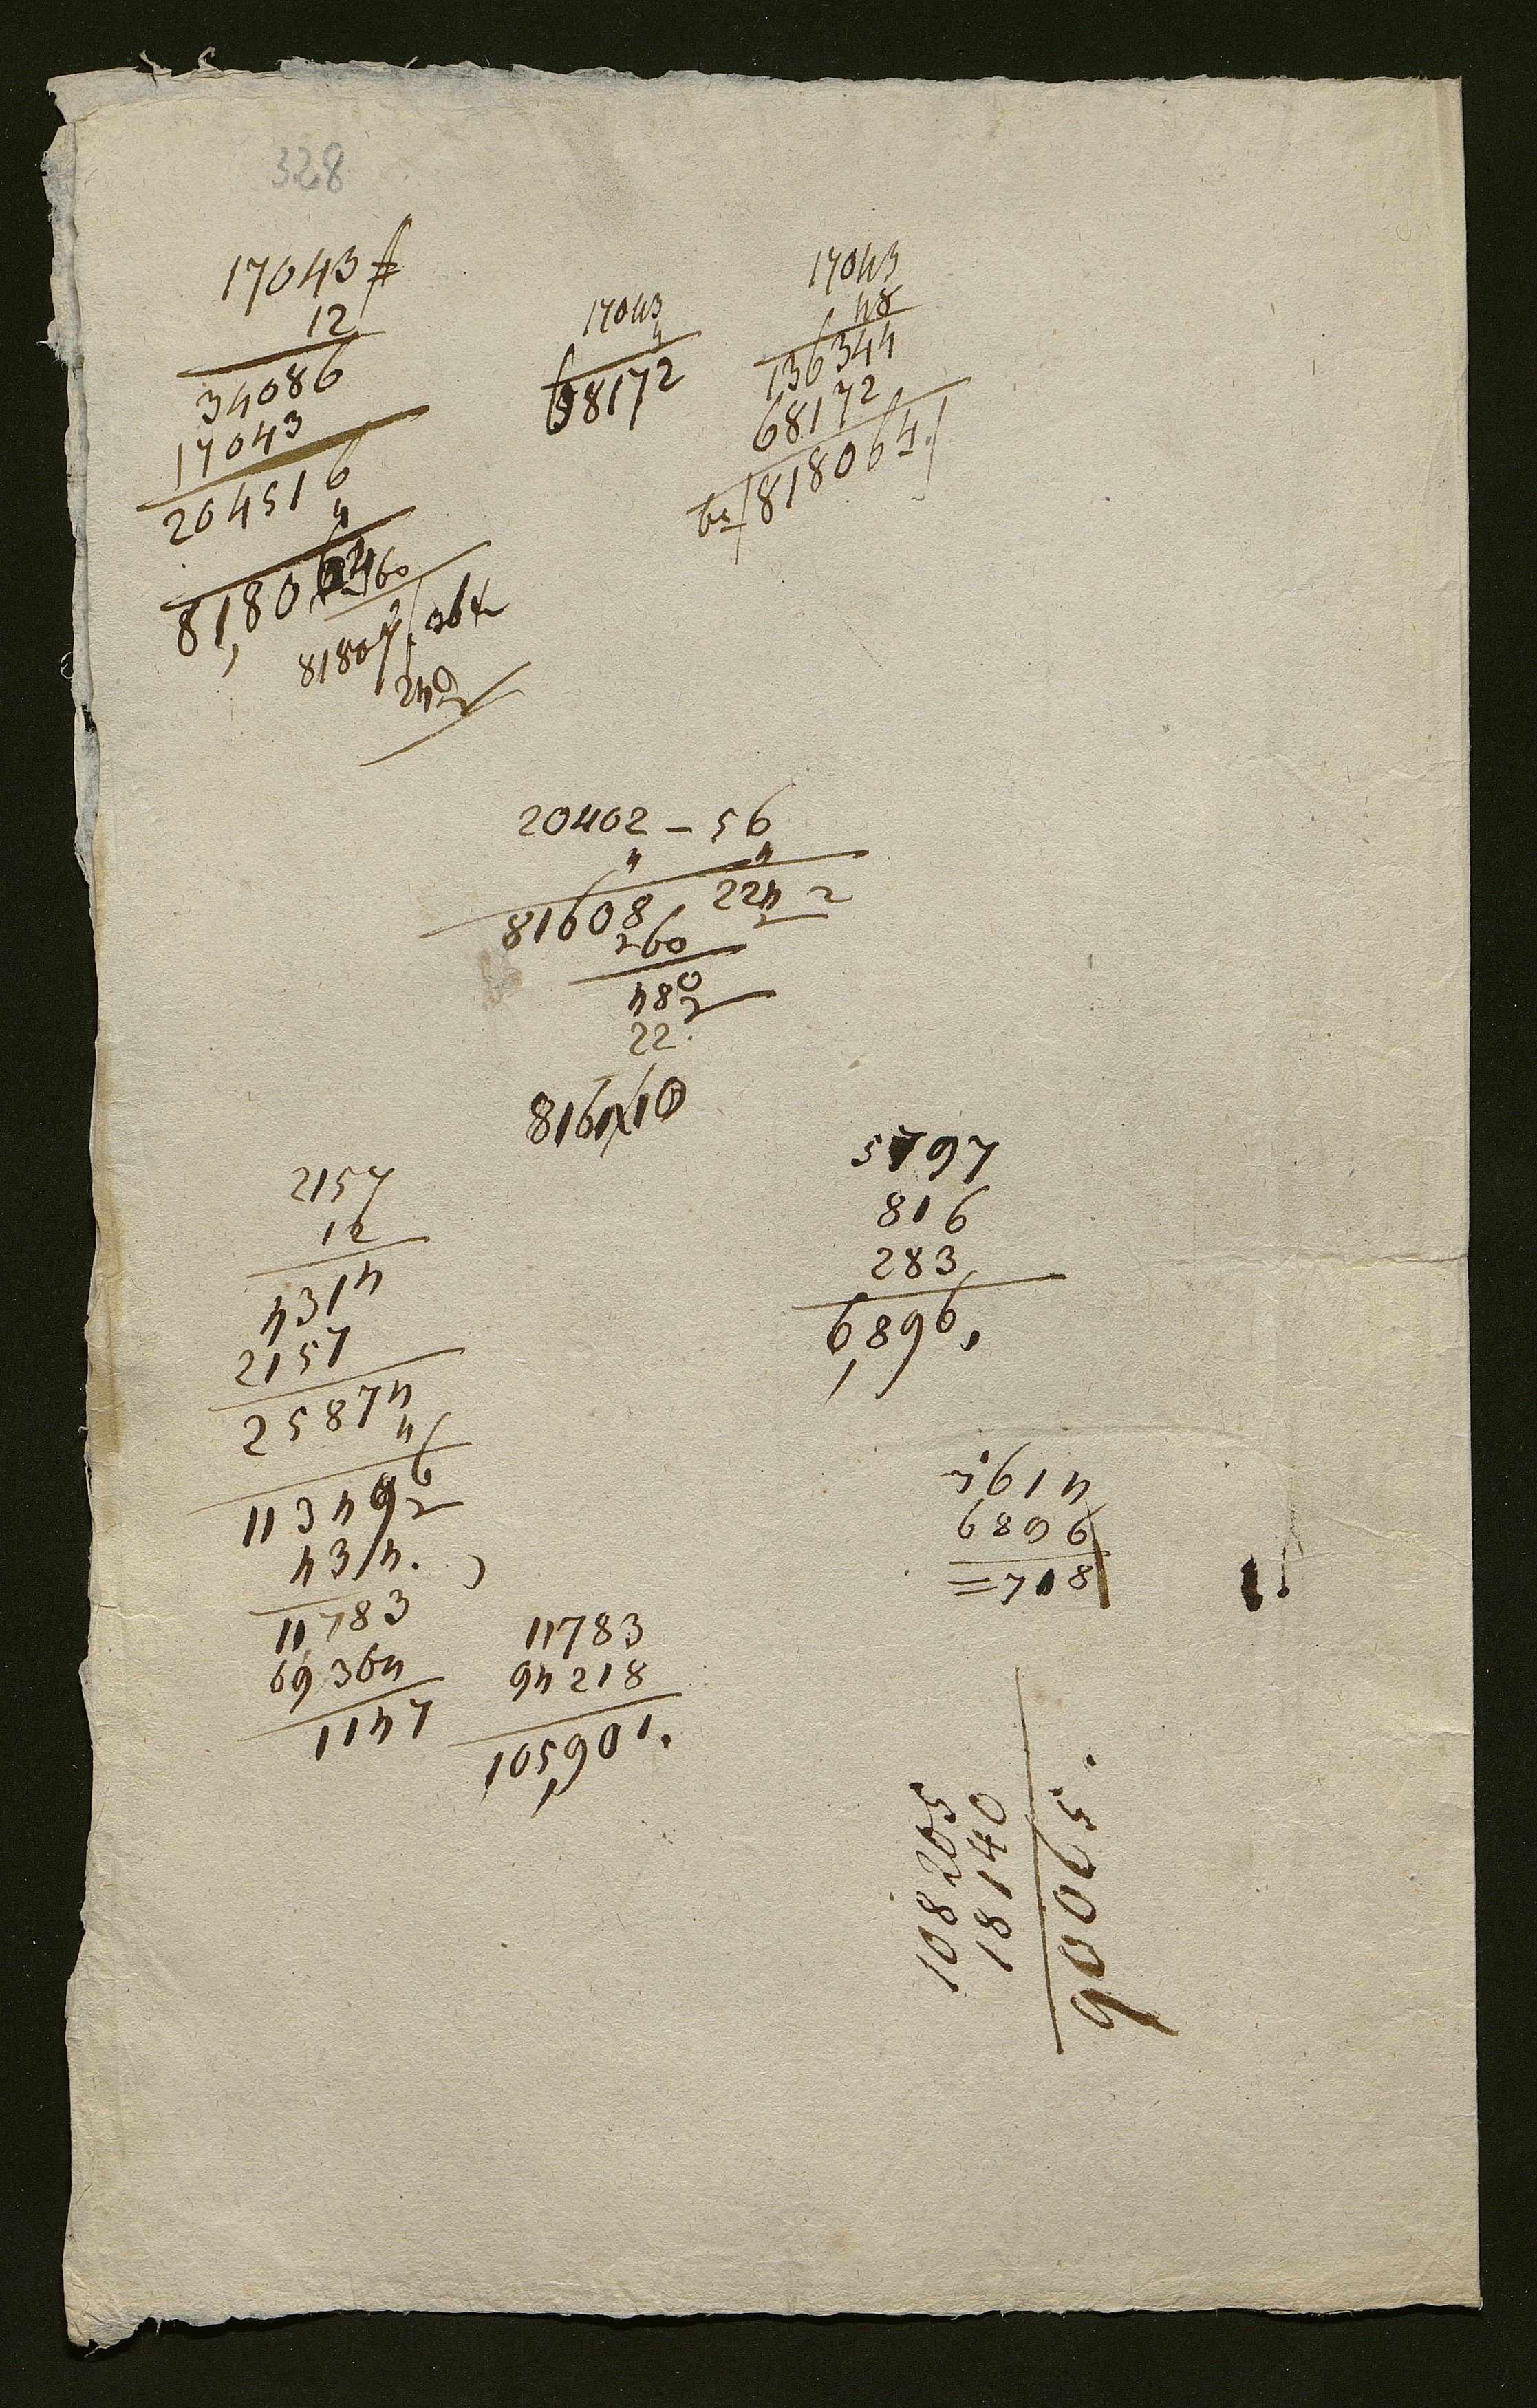 328
17043 #
12
34086
17043
204516
4
818064
60
240
17043
4
68172
17043
48
136344
68172
818064
20402 - 56
4 4
81608 224
60
480
22
816 10
2157
12
4314
2157
25874
4
113496
4314.
11783
69364
1147
11783
94218
105601.
5797
816
283
6896
7614
6896
= 718
108205
18140
90065.